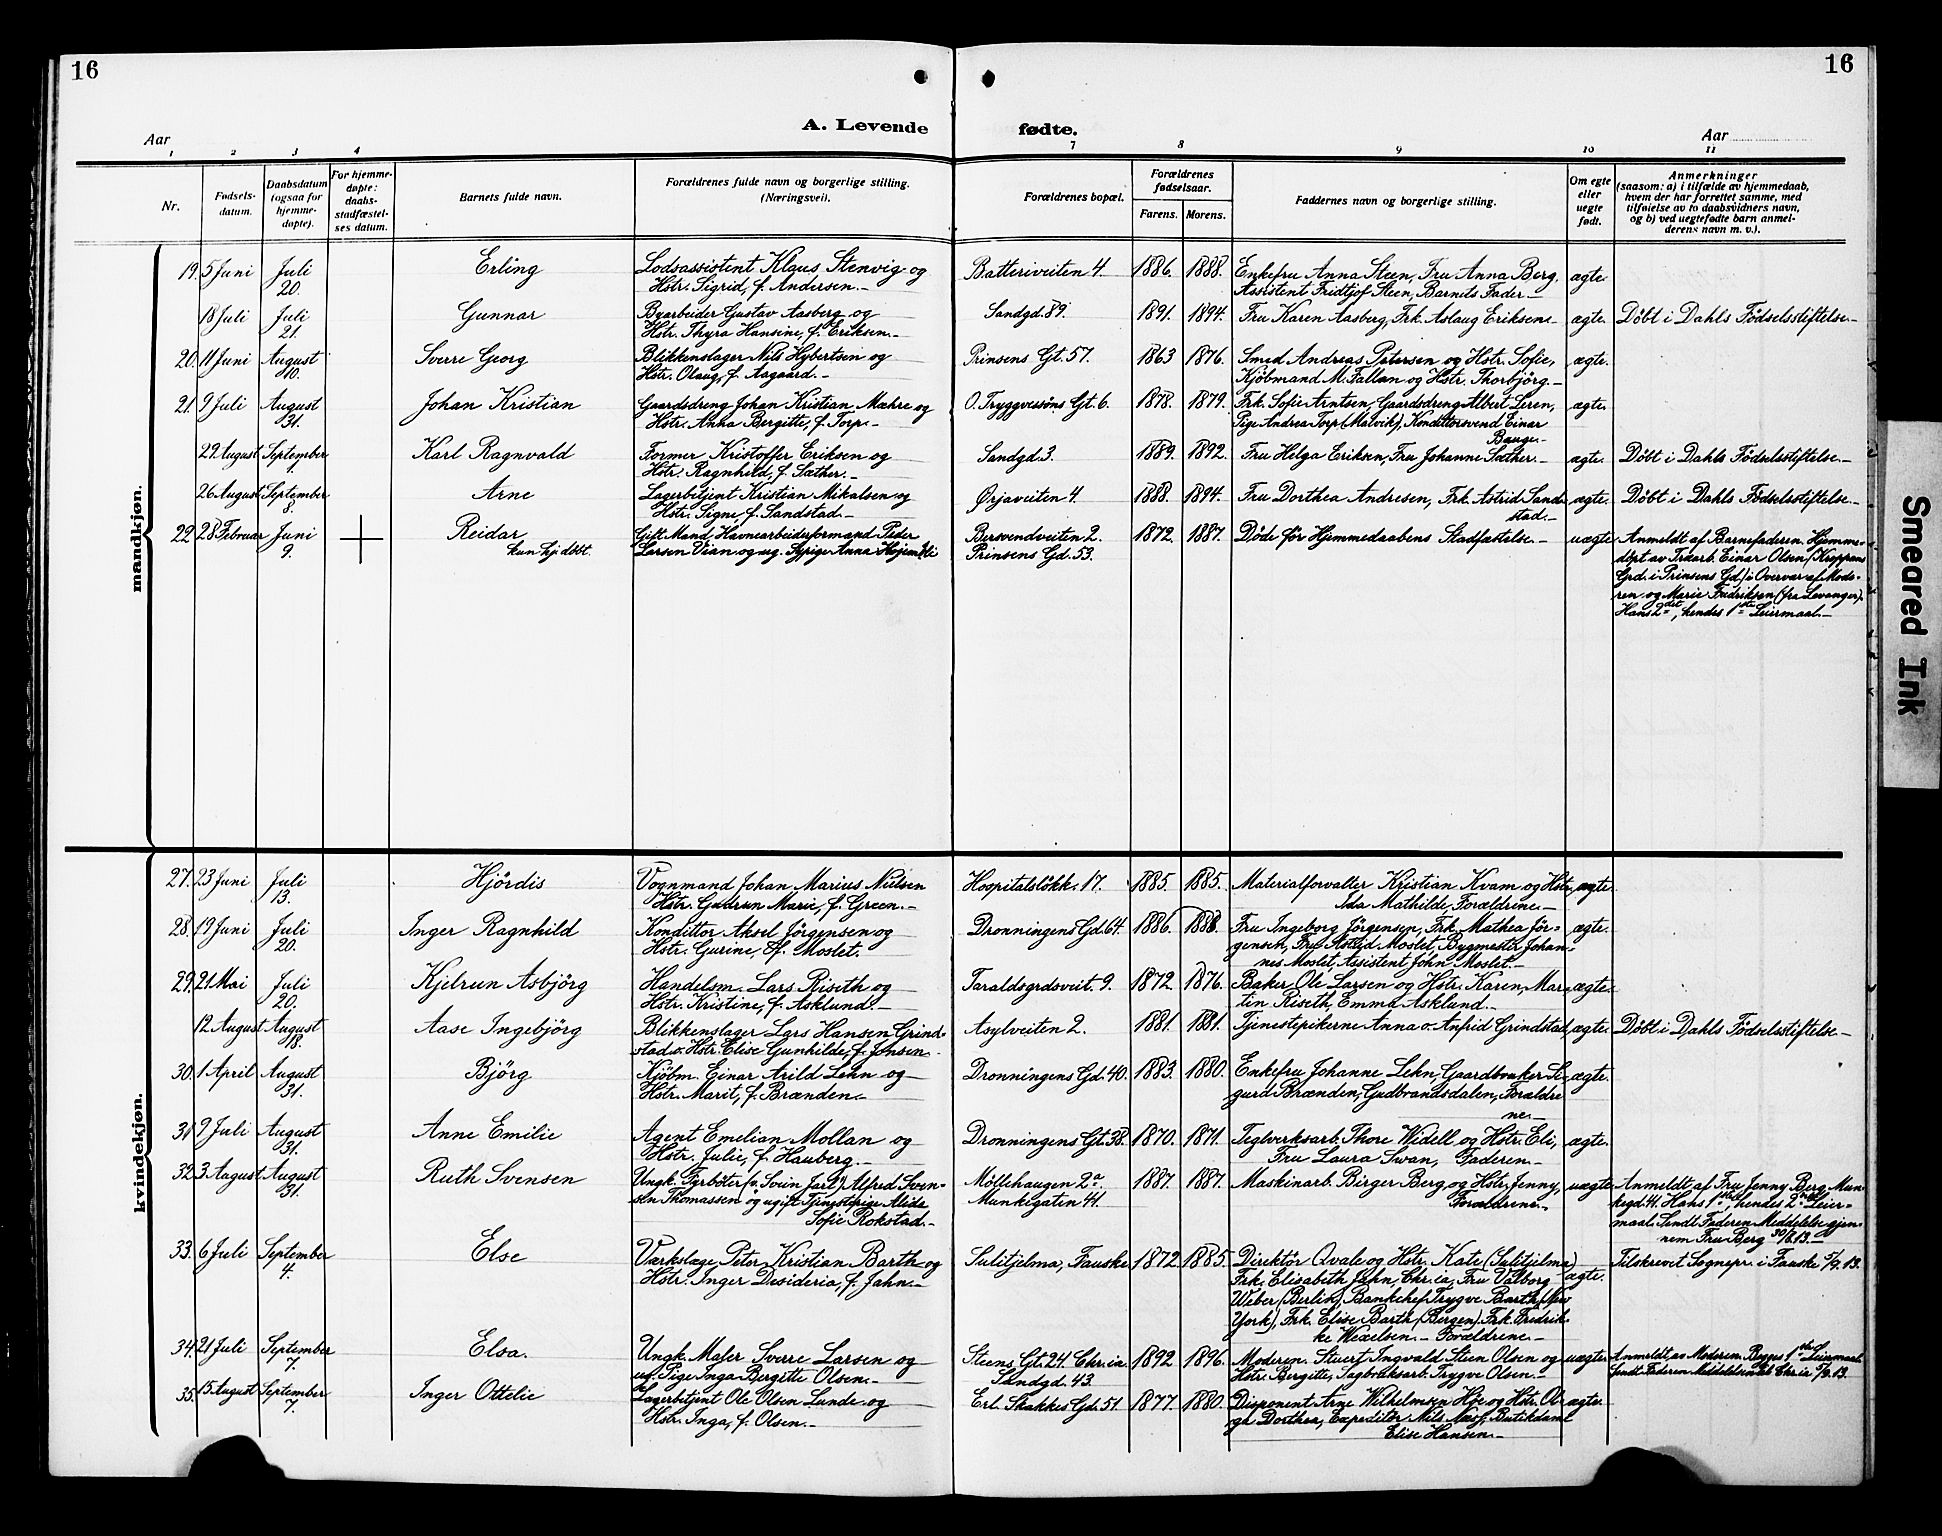 16
16
A. Levende
fødte.
Aar
Aar
1 2 3 4 7 8 9 10 11
Nr.
Fødsels-
datum.
Daabsdatum
(ogsaa for
hjemme-
døpte).
For hjemme-
døpte:
daabs-
stadfæstel-
ses datum.
Barnets fulde navn.
Forældrenes fulde navn og borgerlige stilling.
(Næringsvei).
Forældrenes bopæl.
Forældrenes
fødselsaar.
Farens. Morens.
Faddernes navn og borgerlige stilling.
Om egte
eller
uegte
født.
Anmerkninger
(saasom: a) i tilfælde av hjemmedaab,
hvem der har forrettet samme, med
tilføielse av to daabsvidners navn,
og b) ved uegtefødte barn anmel-
derens navn m. v.).
mandkjøn.
19. 5 Juni Juli Erling Lodsassistent Klaus Stenvig og Batteriveiten 4. 1886. 1888. Enkefru Anna Steen, Fru Anna Berg, ægte.
20. Hstr. Sigrid, f. Andersen.— Assistent Fridtjof Steen, Barnets Fader—
18 Juli Juli Gunnar Byarbeider Gustav Aasberg og Sandgd. 89. 1891. 1894. Fru Karen Aasberg, Frk. Aslaug Eriksen— ægte. Döbt i Dahls Födselsstiftelse—
21. Hstr. Thyra Hansine, f. Eriksen.—
20. 11 Juni August Sverre Georg Blikkenslager Nils Hybertsen og Prinsens Gt. 57. 1863 1876. Smed Andreas Petersen og Hstr. Sofie, ægte.
10. Hstr. Olaug, f. Aagaard.— Kjöbmand M. Fallan og Hstr. Thorbjörg.—
21. 9 Juli August Johan Kristian Gaardsdreng Johan Kristian Mæhre og O. Tryggvessöns Gt. 6. 1878. 1879. Frk. Sofie Arntsen, Gaardsdreng Albert Leren, ægte.
31. Hstr. Anna Bergitte, f. Torp.— Pige Andrea Torp (Malvik), Konditorsvend Einar
Bauge.—
29 August September Karl Ragnvald Former Kristoffer Eriksen og Sandgd. 3. 1889. 1892. Fru Helga Eriksen, Fru Johanne Sæther.— ægte. Döbt i Dahls Födselsstiftelse.—
1. Hstr. Ragnhild, f. Sæther.—
26 August September Arne Lagerbetjent Kristian Mikalsen og Ørjaveiten 4. 1888. 1894. Fru Dorthea Andresen, Frk. Astrid Sand- ægte. Döbt i Dahls Födselsstiftelse—
8. Hstr. Signe, f. Sandstad.— stad.—
22 28 Februar Juni Reidar Gift Mand Havnearbeiderformand Peder Bersvendveiten 2. 1872. 1887. Døde för Hjemmedaabens Stadfæstelse.— uægte Anmeldt af Barnefaderen. Hjemme-
9. kun hj. döbt. Larsen Vian og ug. Sypige Anna Prinsens Gd. 53. døpt av Træarb. Einar Olsen,
Grd. i Prinsens Gd.) i Overvær af Mode-
ren og Marie Fredriksen (fra Levanger).
Hans 2det, hendes 1ste Leiermaal.—
kvindekjøn.
27. 23 Juni Juli Hjördis Vognmand Johan Marius Nielsen Hospitalslökk. 17. 1885. 1885. Materialforvalter Kristian Kvam og Hstr. ægte.
13. Hstr. Gudrun Marie, f. Green.— Ida Mathilde, Forældrene—
28. 19 Juni Juli Inger Ragnhild Konditor Aksel Jörgensen og Dronningens Gd. 64. 1886. 1888. Fru Ingeborg Jörgensen, Frk. Mathea Jör- ægte.
20. Hstr. Gurine, f. Moslet. gensen, Fru Astrid Moslet, Bygmester Johan-
nes Moslet, Assistent John Moslet.—
29. 21 Mai Juli Kjelrun Asbjörg Handelsm. Lars Riseth og Taraldsgrdsveit. 9. 1872. 1876. Baker Ole Larsen og Hstr. Karen, Mar- ægte.
20. Hstr. Kristine, f. Asklund.— tin Riseth, Emma Asklund.—
12. August August Aase Ingebjörg Blikkenslager Lars Hansen Grind- Asylveiten 2. 1881. 1881. Tjenestepikerne Anna o. Anfrid Grindstad, ægte. Döbt i Dahls Födselsstiftelse—
18. stad o. Hstr. Elise Gunhilde, f. Jonsen.
30. 1 April August Björg Kjöbm. Einar Arild Lehn og Dronningens Gd. 40. 1883. 1880. Enkefru Johanne Lehn, Gaardbruker Si- ægte.
31. Hstr. Marit, f. Brænden.— gurd Brænden, Gudbrandsdalen, Forældre
ne.—
31 9 Juli August Anne Emilie Agent Emelian Mollan og Dronningens Gt. 38. 1870. 1871. Teglverksarb. Thore Widell og Hstr. Eli, ægte.
31. Hstr. Julie, f. Hauberg.— Fru Laura Swan, Faderen.—
32. 3 August August Ruth Svensen Ungk. Fyrböter (v. Svein Jarl) Alfred Sven- Möllehaugen 2a. 1887. 1887. Maskinarb. Birger Berg og Hstr. Jenny, uægte Anmeldt af Fru Jenny Berg, Mun-
31. sen Thomassen og ugift Tjenestepige Alida Munkegaten 41. Forældrene.— kegd. 41. Hans 1ste, hendes 2det Leier-
Sofie Rokstad.— maal. Sendt Faderen Meddelelse gjen-
nem Fru Berg 30/8 13.—
33. 6 Juli September Else Værkslæge Peter Kristian Barth og Sulitjelma, Fauske 1872. 1885. Direktör Qvale og Hstr. Kate (Sulitjelma) ægte. Tilskrevet Sognepr. i Fauske 5/9. 13.
4. Hstr. Inger Desideria, f. Jahn.— Frk. Elisabeth Jahn, Chr.ia, Fru Valborg
Weber (Berlin), Bankchef Trygve Barth (New
York), Frk. Elise Barth (Bergen), Frk. Fredrik-
ke Wexelsen.— Forældrene.—
34. 21 Juli September Elsa. Ungk. Maler Sverre Larsen og Steens Gt. 24. Chr.ia 1892. 1896. Moderen. Stuert Ingvald Steen Olsen og uægte Anmeldt av Moderen. Begges 1ste Leiermaal.
7. ug. Pige Inga Bergitte Olsen.— Sandgd. 43. Hstr. Birgitte, Sagbruksarb. Trygve Olsen.— Sendt Faderen Meddelelse Chr.ia 5/9. 13.
35. 15 August September Inger Ottelie Lagerbetjent Ole Olsen Lunde og Erl. Skakkes Gd. 51 1877. 1880. Disponent Arne Wilhelmsen Hje og Hstr. Ol- ægte.
7. Hstr. Inga, f. Olsen.— ga Dorthea, Expeditör Nils Næss, Butikdame
Elise Hansen—
Smeared Ink